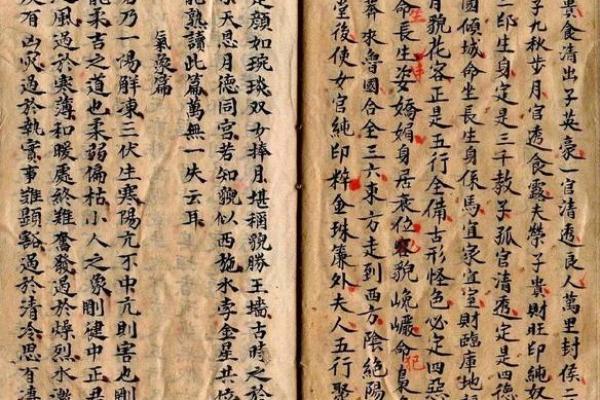 食清出子英豪一官清透良人萬里封侯二
子九秋步月官透食露夫榮子貴財旺印純奴
二印生身定是三千教子孤官清透定是四德
國傾城命坐長生身係馬宜家宜室財臨庫地
月貌花容正是五行全備古形怪色必定四惡
命長生姿嬌媚身居夜位容貌巉巖命梟
莽來魯國合全三六東方走到西方陰絶陽
堂後使女官純印粹金珠簾外夫人五行聚
是顏如琬琰双女捧月堪稱貌勝王墻古時之於
天恩月德同宮若知貌似西施水孛金星共
能熟讀此篇萬無一失云耳
氣象篇
乃一陽解凍三伏生寒陽亢不中亢則害也剛
能柔吉之道也柔弱偏枯小人之象剛健中正
風過於寒薄和暖處終難奮發過於燥烈水激
有凶災過於執實事難顯豁過於清冷思有凄